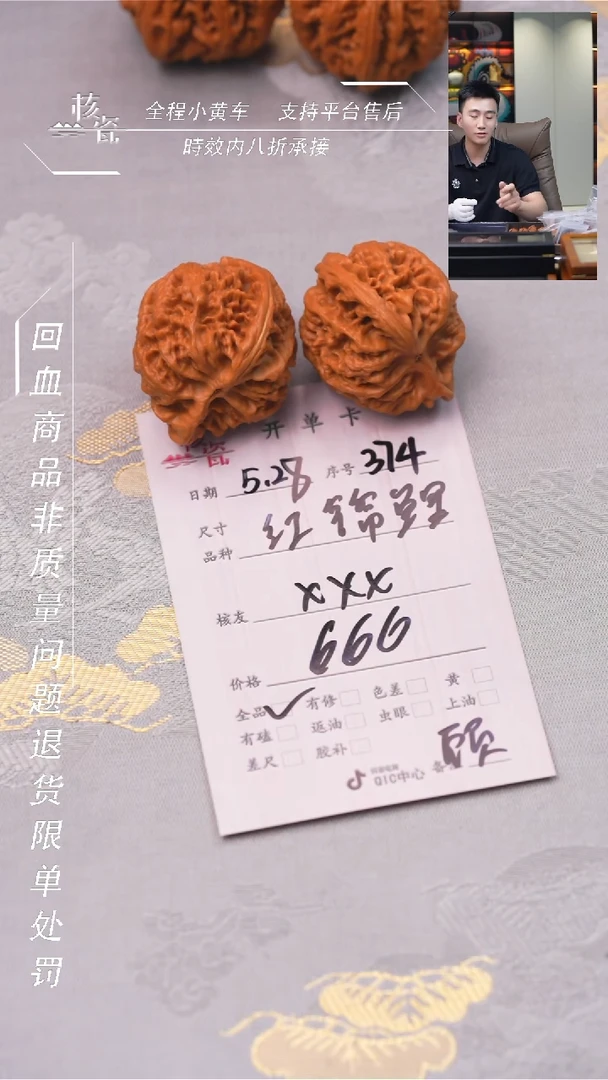 核瓷
全程小黄车 支持平台售后
時效内八折承接
回血商品非质量问题退货限单处罚
开单卡
日期 5.28 序号 374
尺寸
品种 红锦鲤
核友 XXX
价格 666
全品 ✓ 有修 色差 黄
有磕 返油 虫眼 上油
差尺 胶补
QIC中心